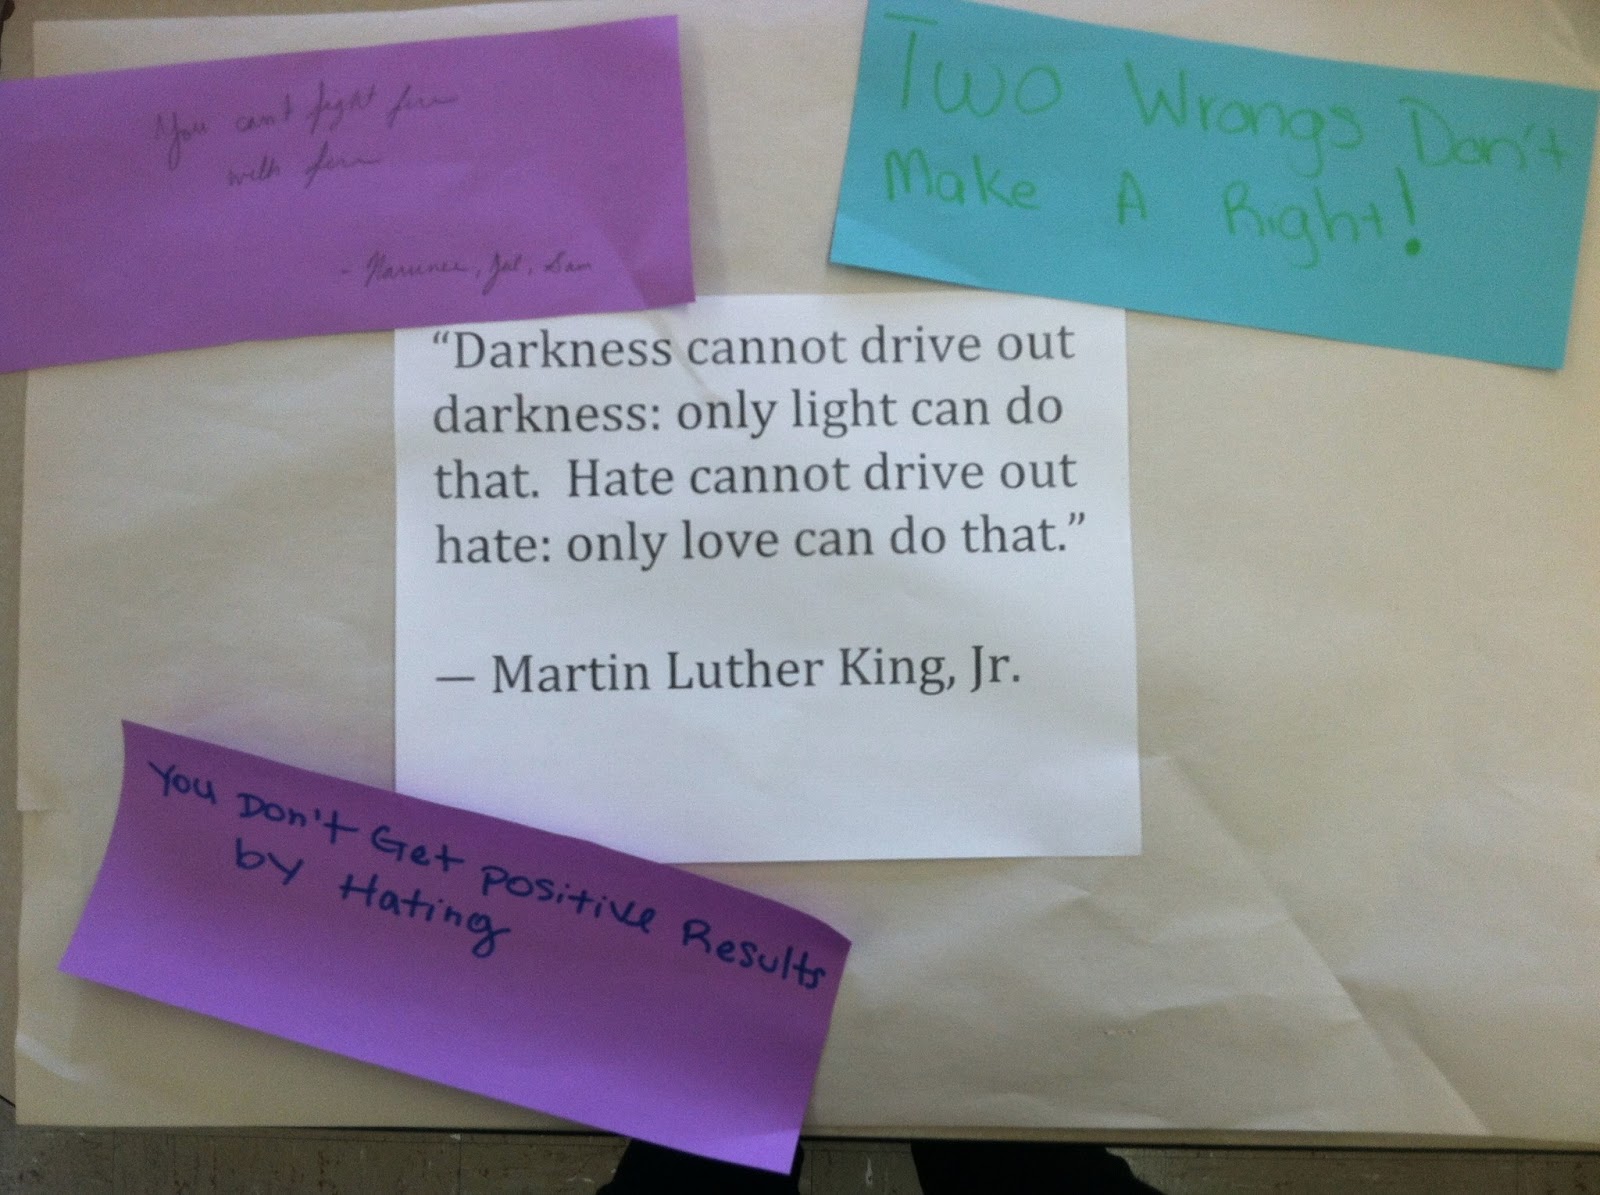 You can't fight fire
with fire
- Narunee, Jal, Sam
Two Wrongs Don't
Make A Right!
“Darkness cannot drive out
darkness: only light can do
that. Hate cannot drive out
hate: only love can do that.”
— Martin Luther King, Jr.
You Don't Get Positive Results
by Hating